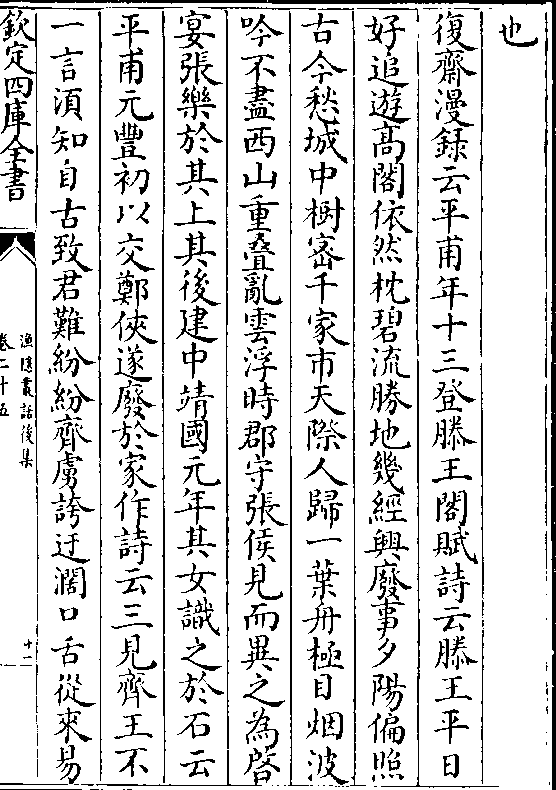 也
復齋漫録云平甫年十三登滕王閣賦詩云滕王平日
好追遊髙閣依然枕碧流勝地幾經興廢事夕陽偏照
古今愁城中樹宻千家市天際人歸一葉舟極目烟波
吟不盡西山重叠亂雲浮時郡守張侯見而異之為啓
宴張樂於其上其後建中靖國元年其女識之於石云
平甫元豐初以交鄭俠遂廢於家作詩云三見齊王不
一言須知自古致君難紛紛齊虜誇迂濶口舌從來易
欽定四庫全書
漁隱叢話後集
卷二十五
十二